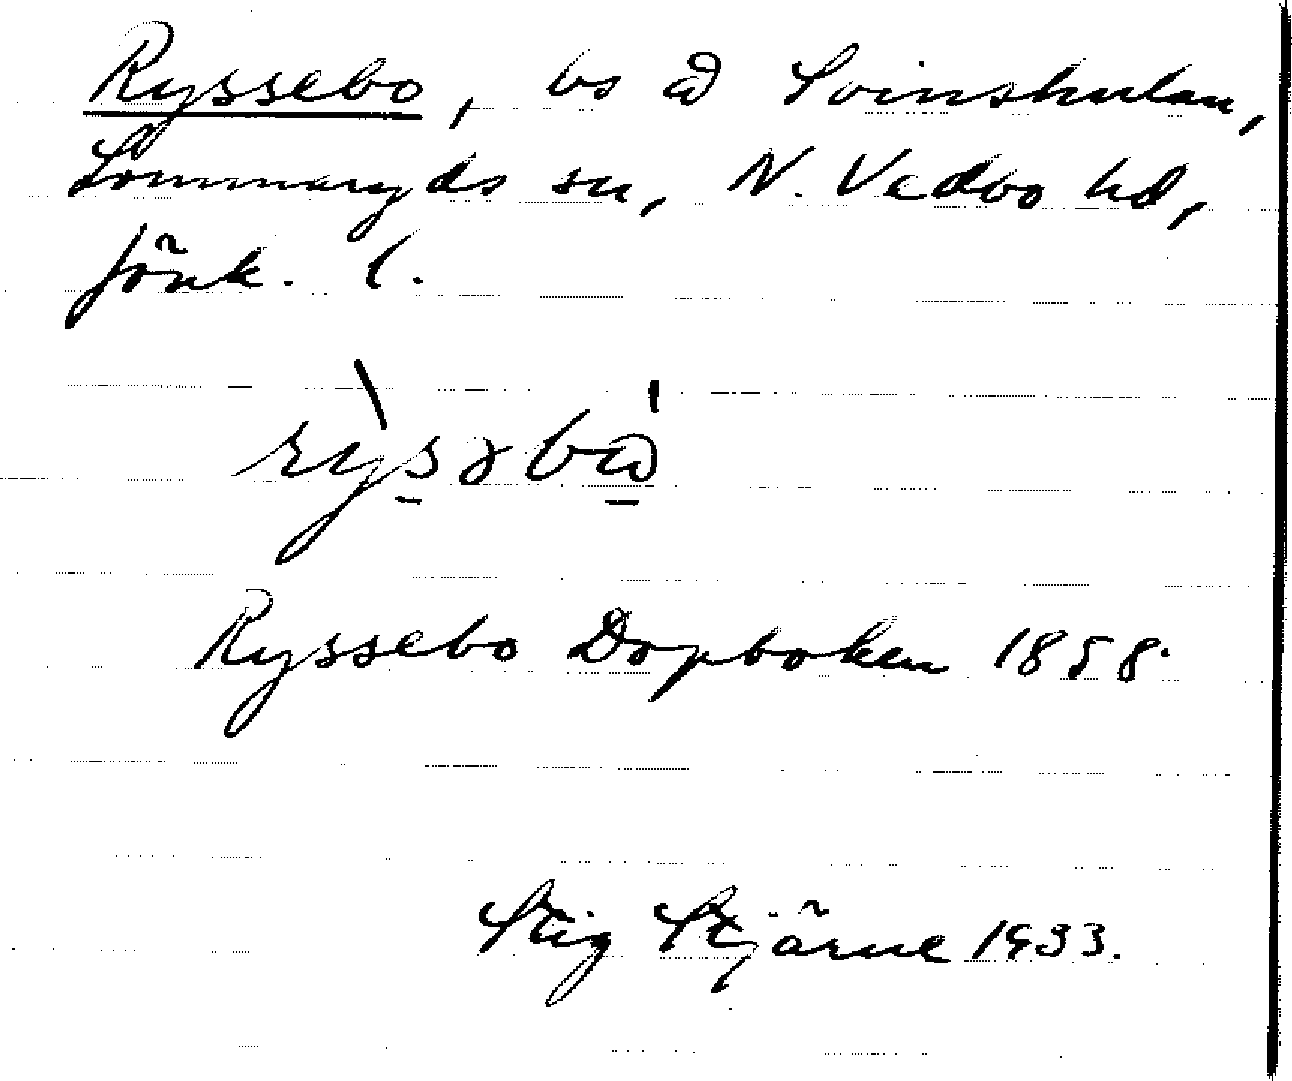 Ryssebo, bs å Svinshulan,
Lommaryds sn, N. Vedbo hd,
Jönk. l.
Ryssebo Dopboken 1858.
Stig Stjärne 1933.